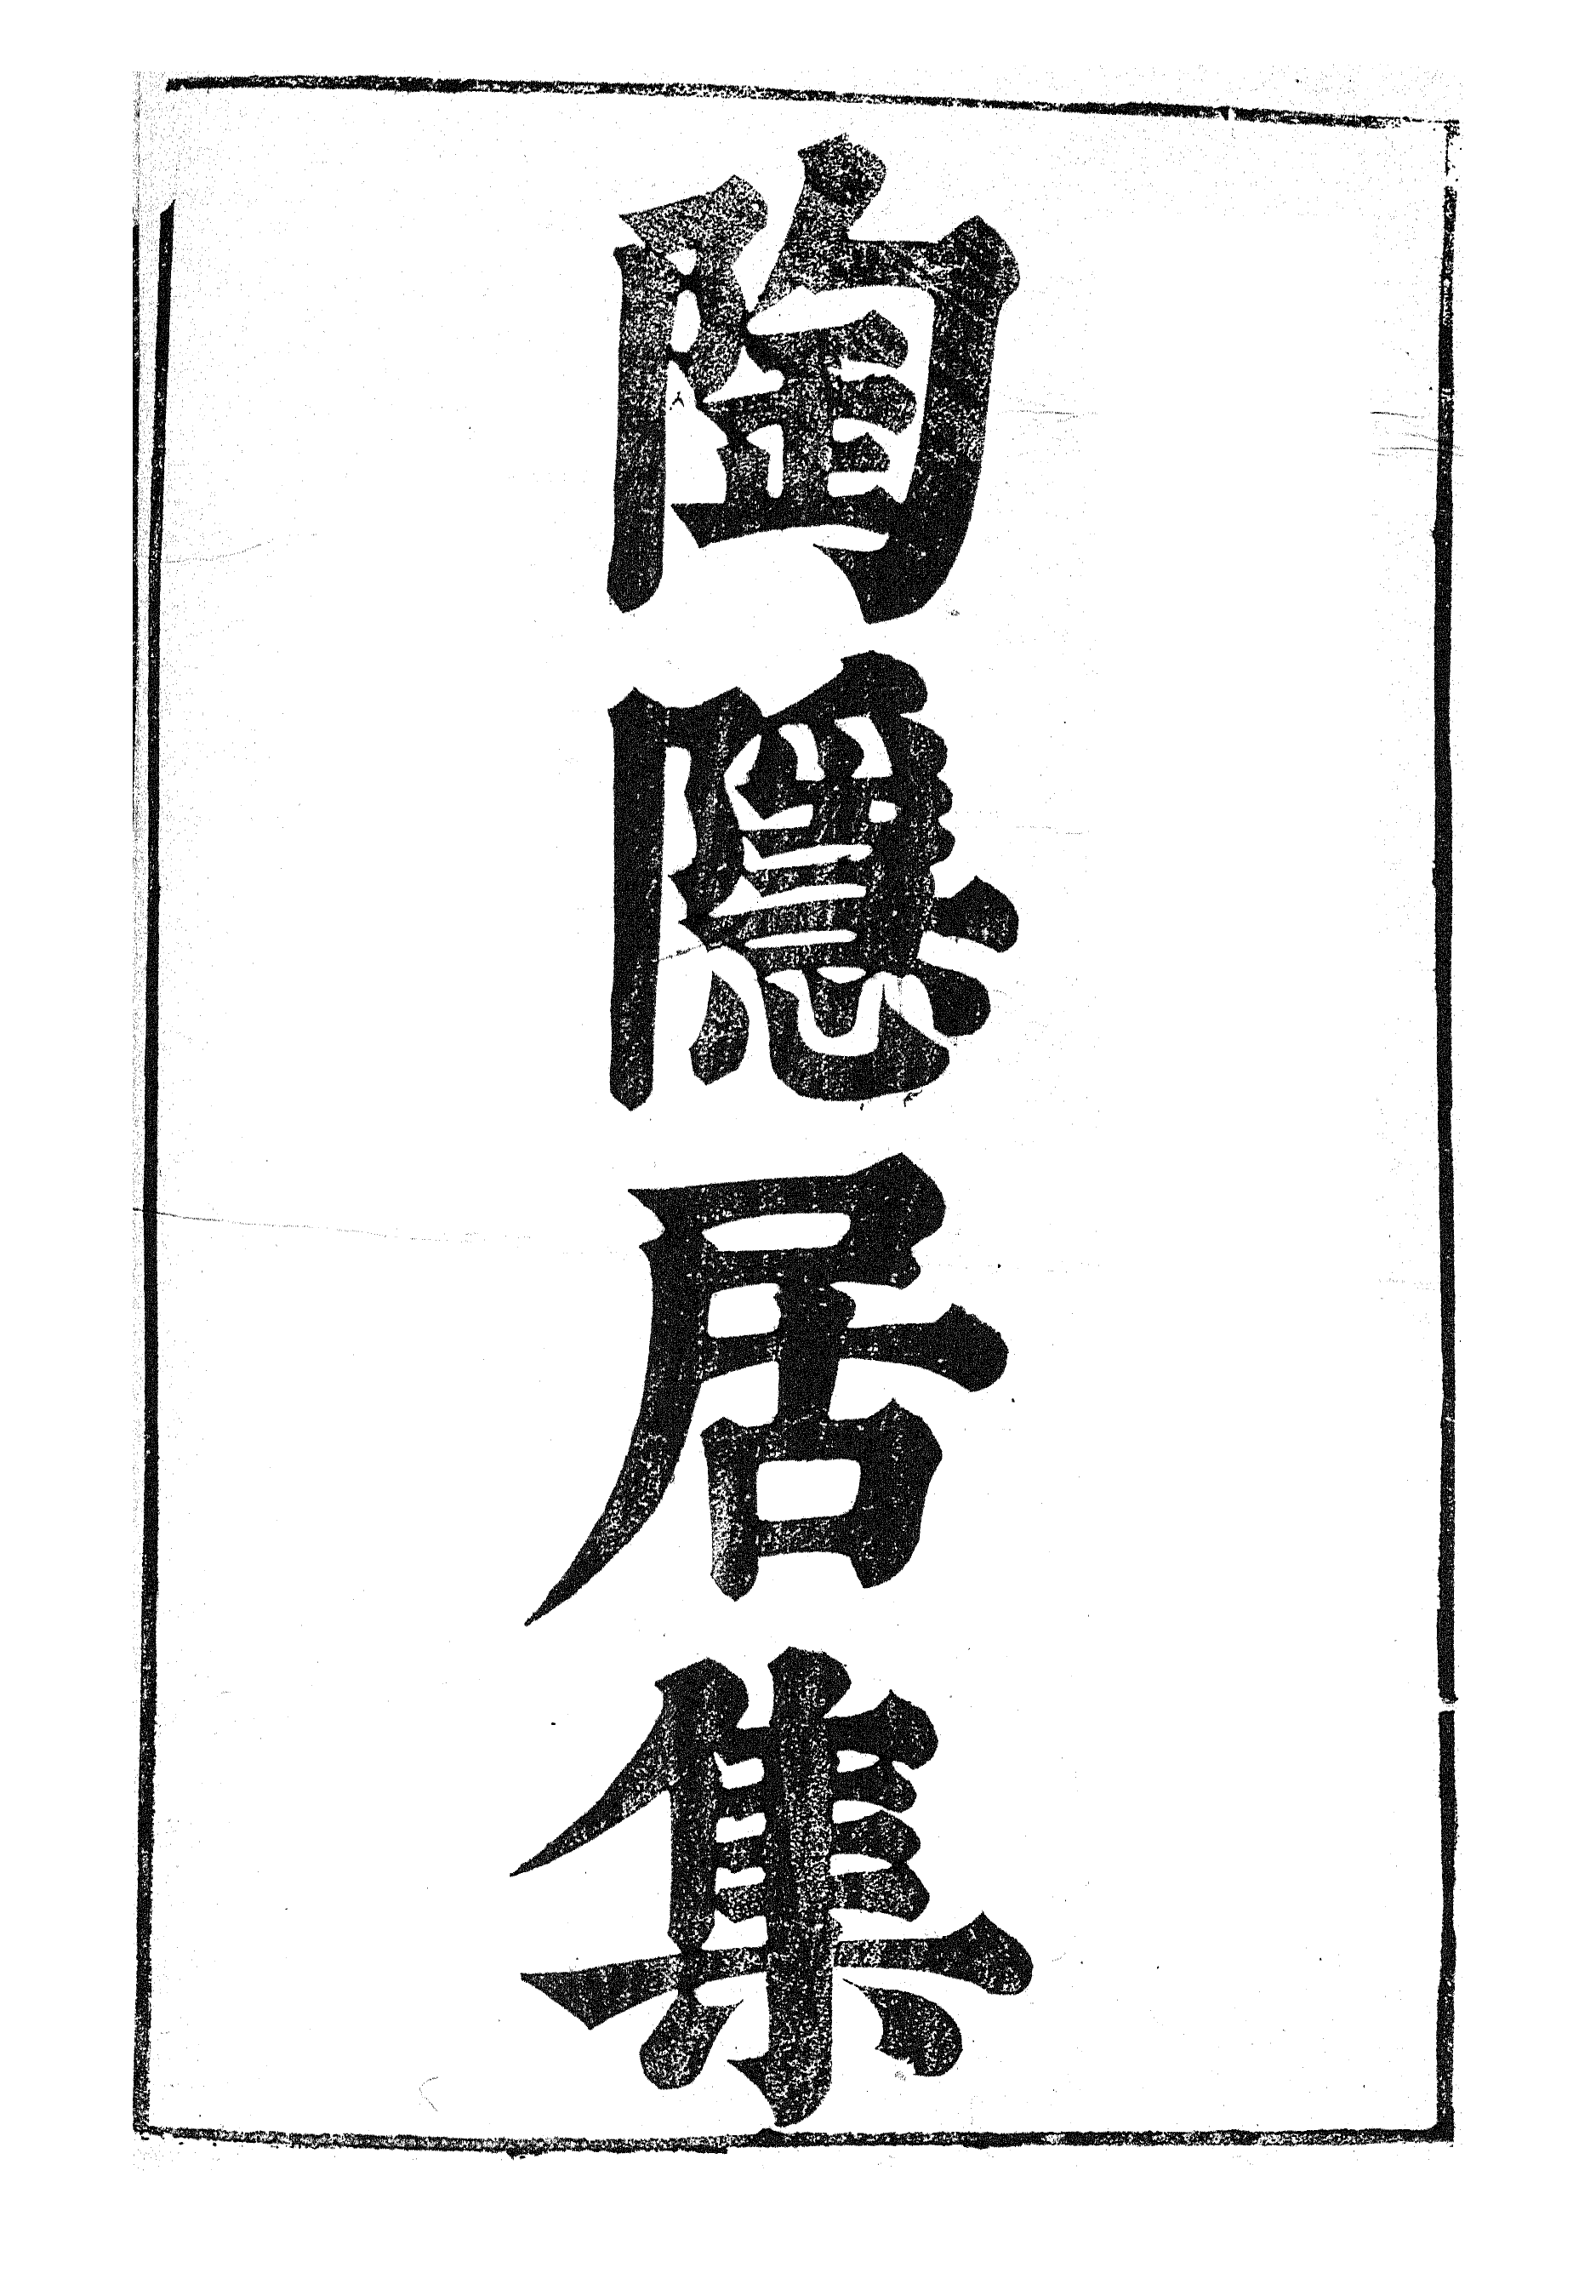 陶隱居集